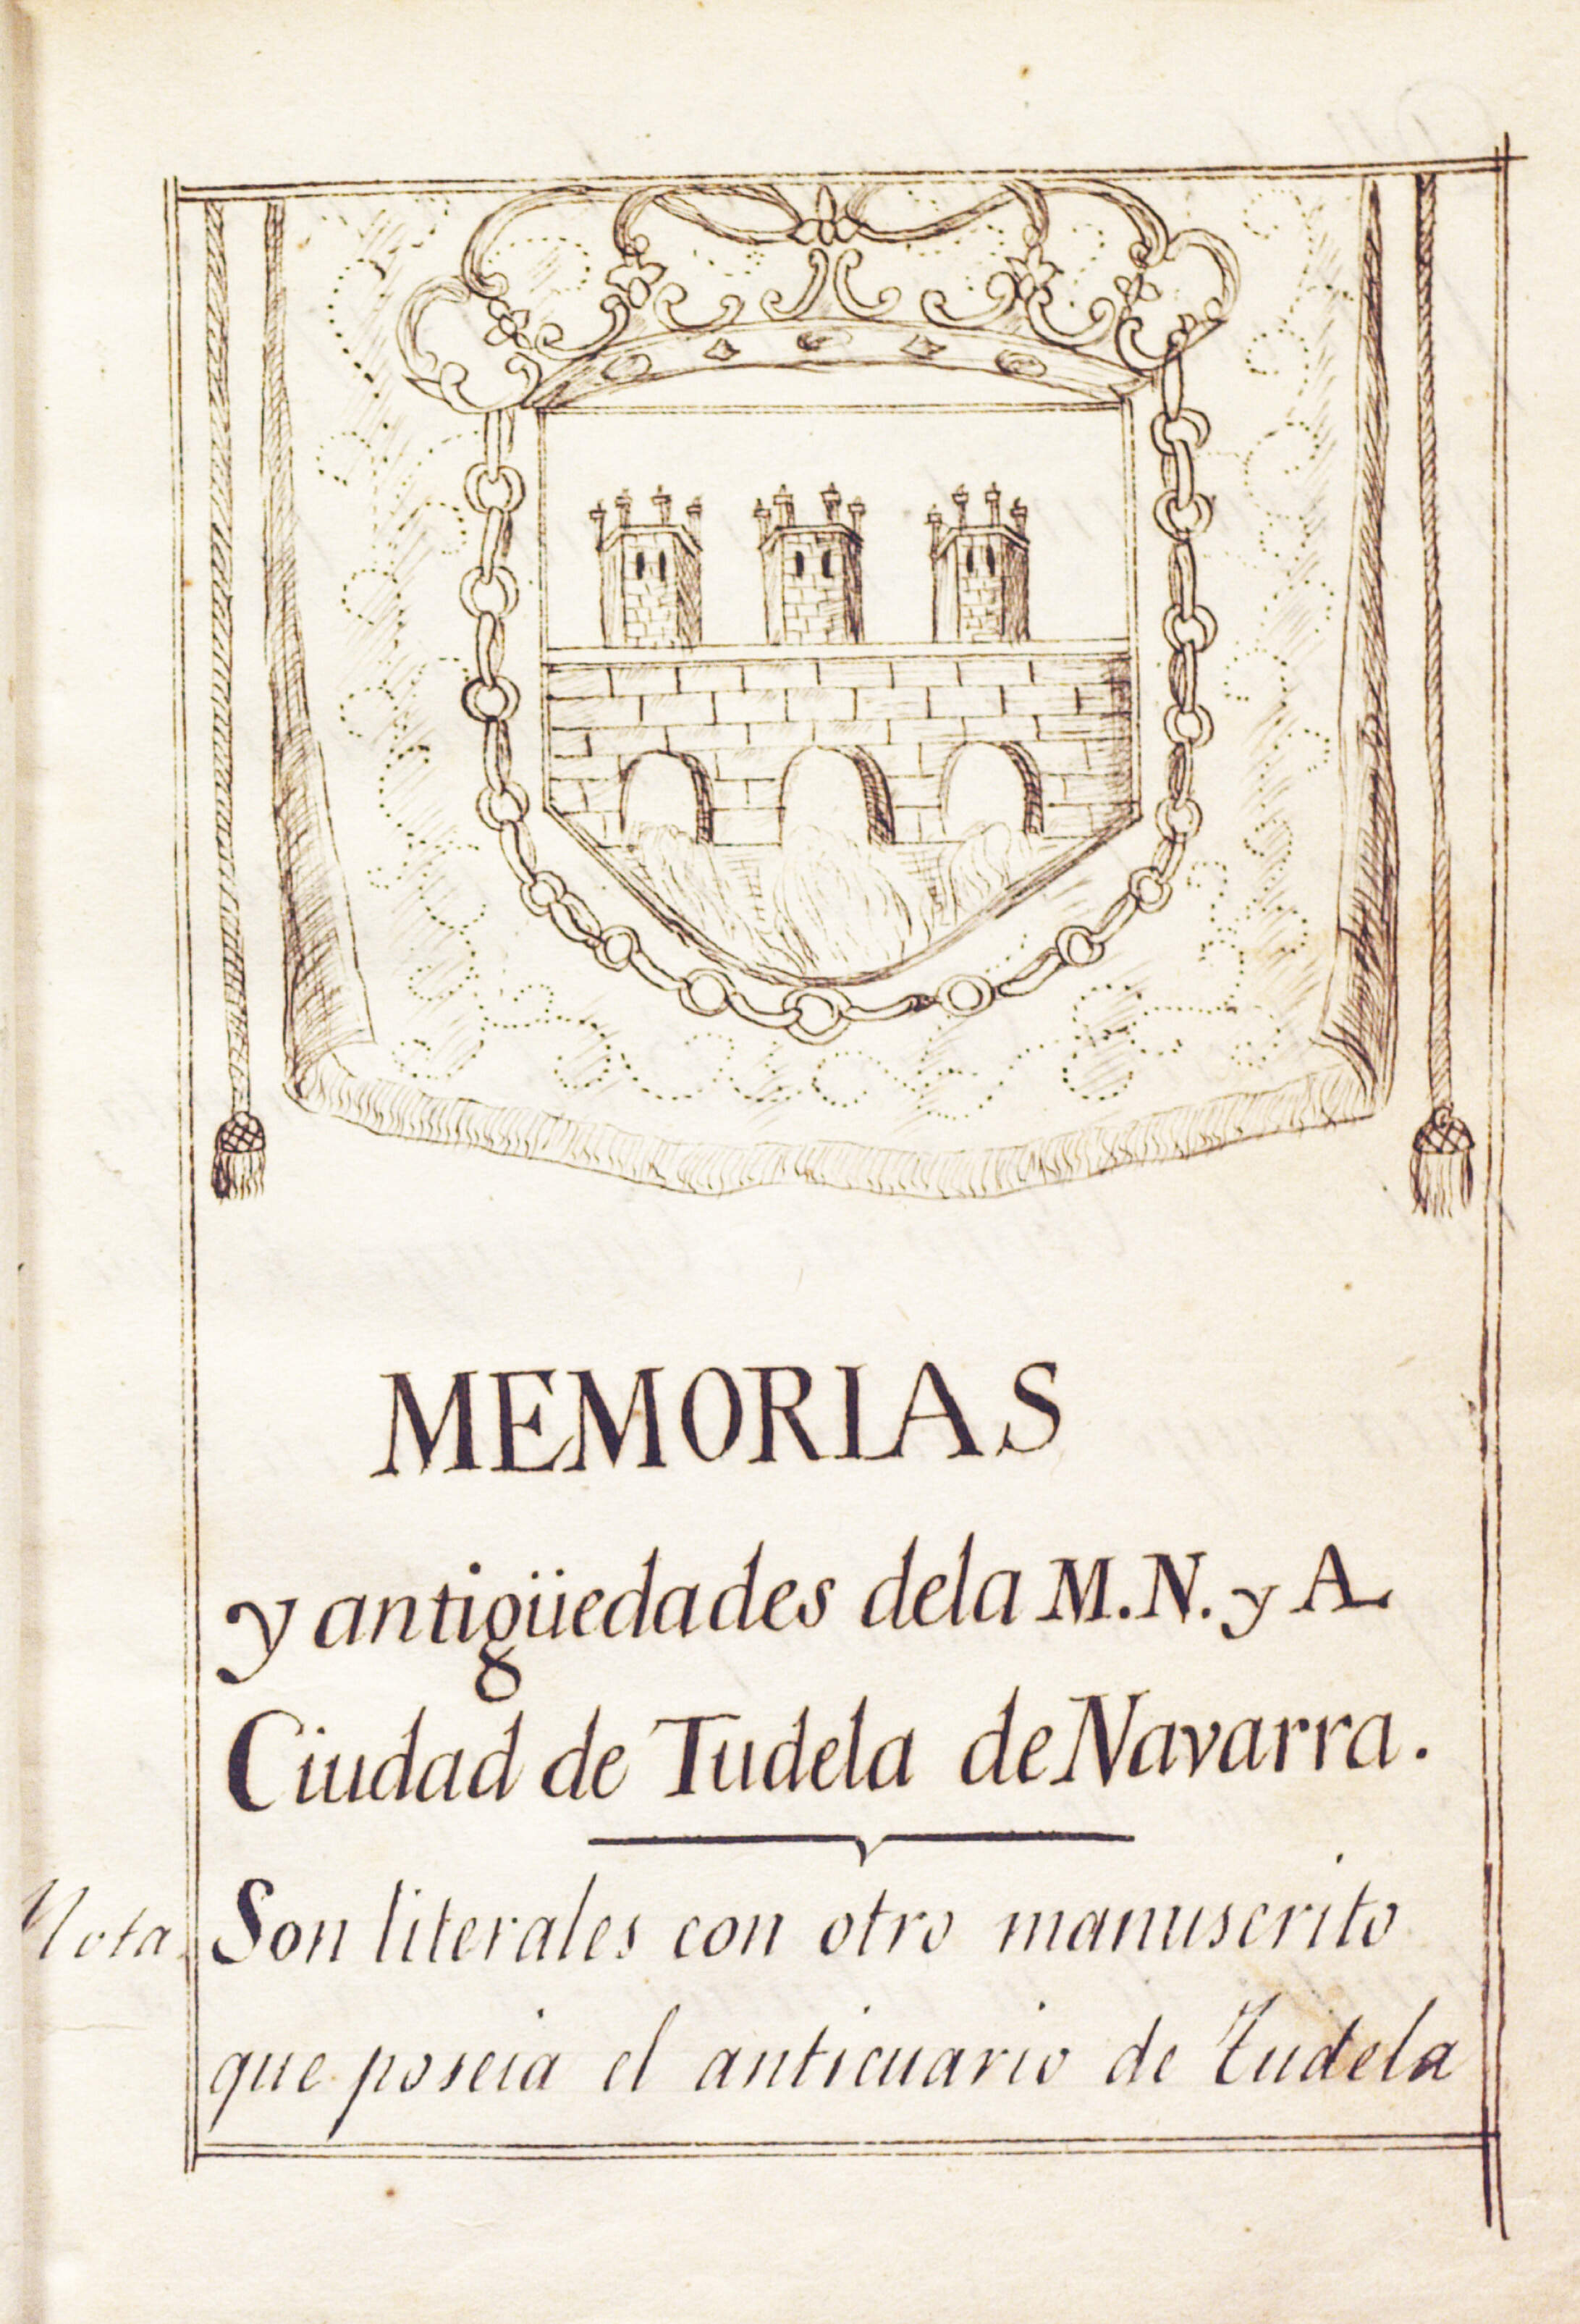 MEMORIAS
y antigüedades dela M. N. y A.
Ciudad de Tudela de Navarra.
Nota. Son literales con otro manuscrito
que poseia el anticuario de Tudela